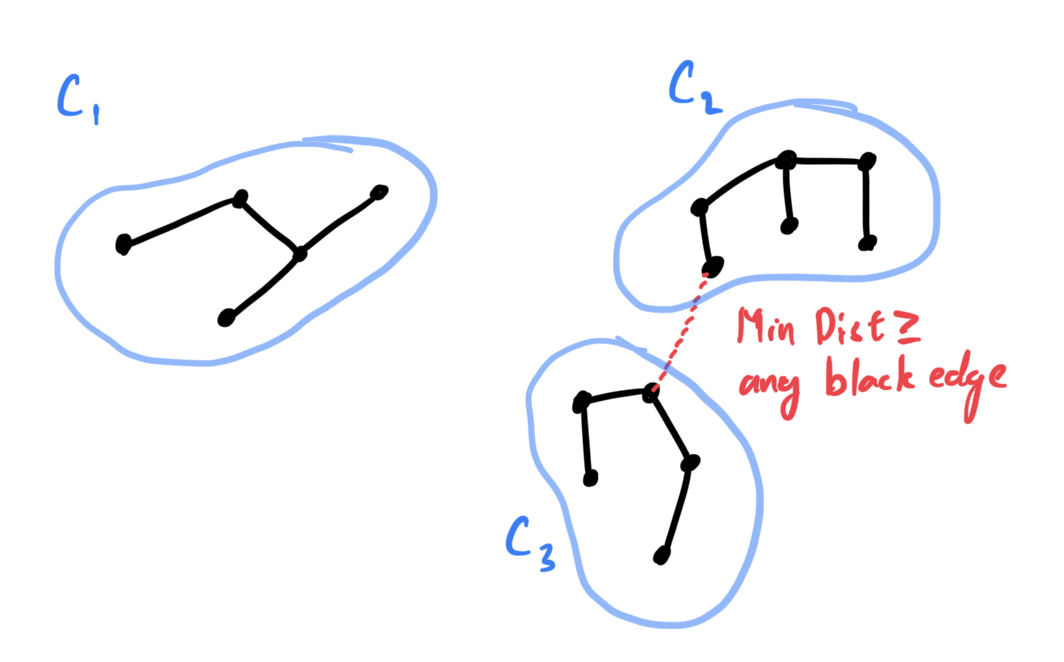 C₁
C₂
Min Dist ≥
any black edge
C₃